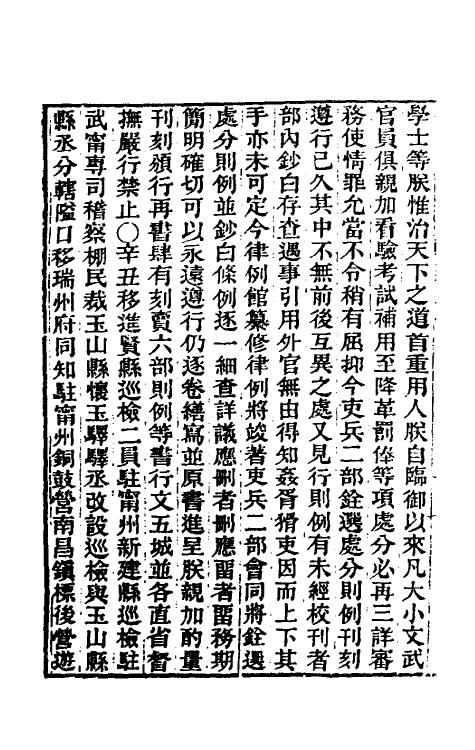 學士等朕惟治天下之道首重用人朕自臨御以來凡大小文武
官員俱親加看驗考試補用至降革罰俸等項處分必再三詳審
務使情罪允當不令稍有屈抑今吏兵二部銓選處分則例刊刻
遵行已久其中不無前後互異之處又見行則例有未經校刊者
部內鈔白存查遇事引用外官無由得知姦胥猾吏因而上下其
手亦未可定今律例館纂修律例將竣著吏兵二部會同將銓選
處分則例並鈔白條例逐一細查詳議應刪者刪應畱者畱務期
簡明確切可以永遠遵行仍逐卷繕寫並原書進呈朕親加酌量
刊刻頒行再書肆有刻賣六部則例等書行文五城並各直省督
撫嚴行禁止〇辛丑移進賢縣巡檢二員駐甯州新建縣巡檢駐
武甯專司稽察棚民裁玉山縣懷玉驛驛丞改設巡檢與玉山縣
縣丞分轄隘口移瑞州府同知駐甯州銅鼓營南昌鎭標後營遊